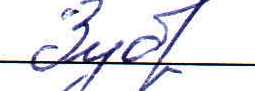 Зуб